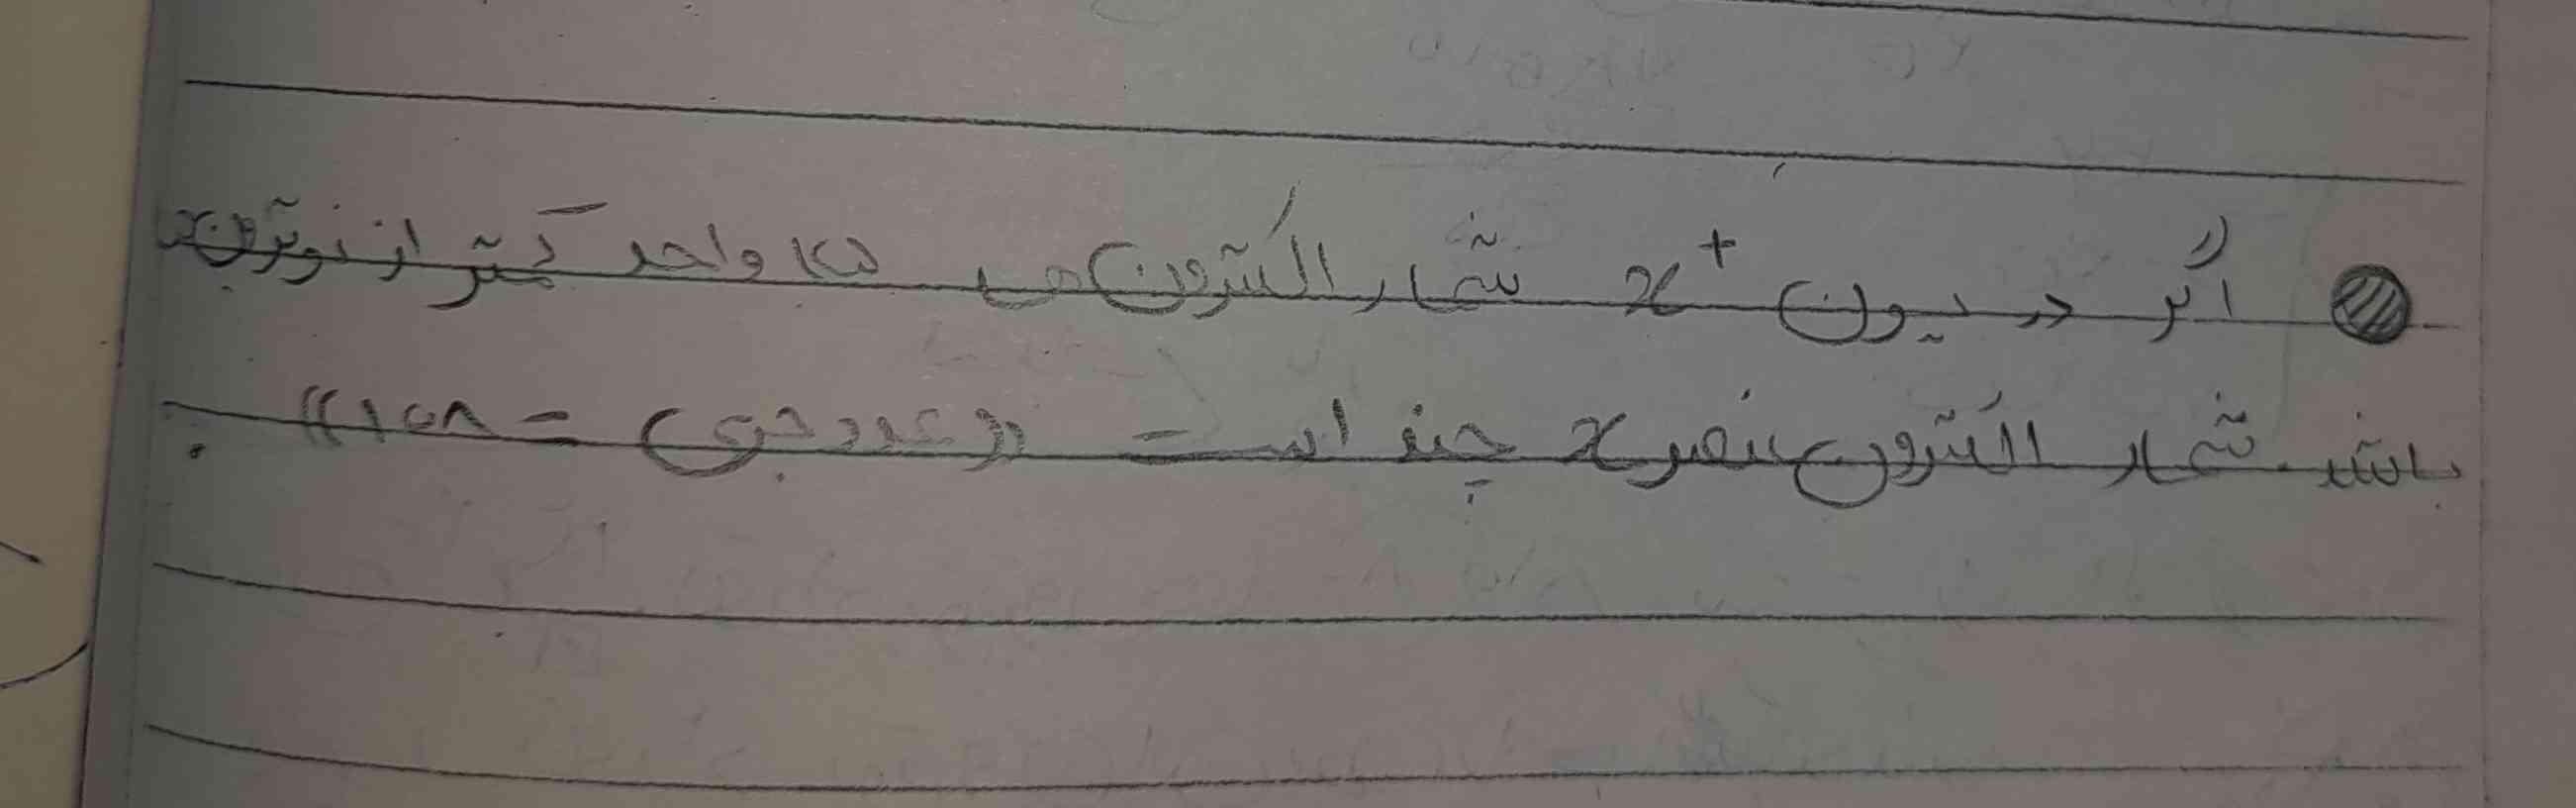 اگر در یون x⁺ شمار الکترون ها ۱۵ واحد کمتر از نوترون ها
باشد. شمار الکترون عنصر x چند است ((عدد جرمی = ۱۰۸))